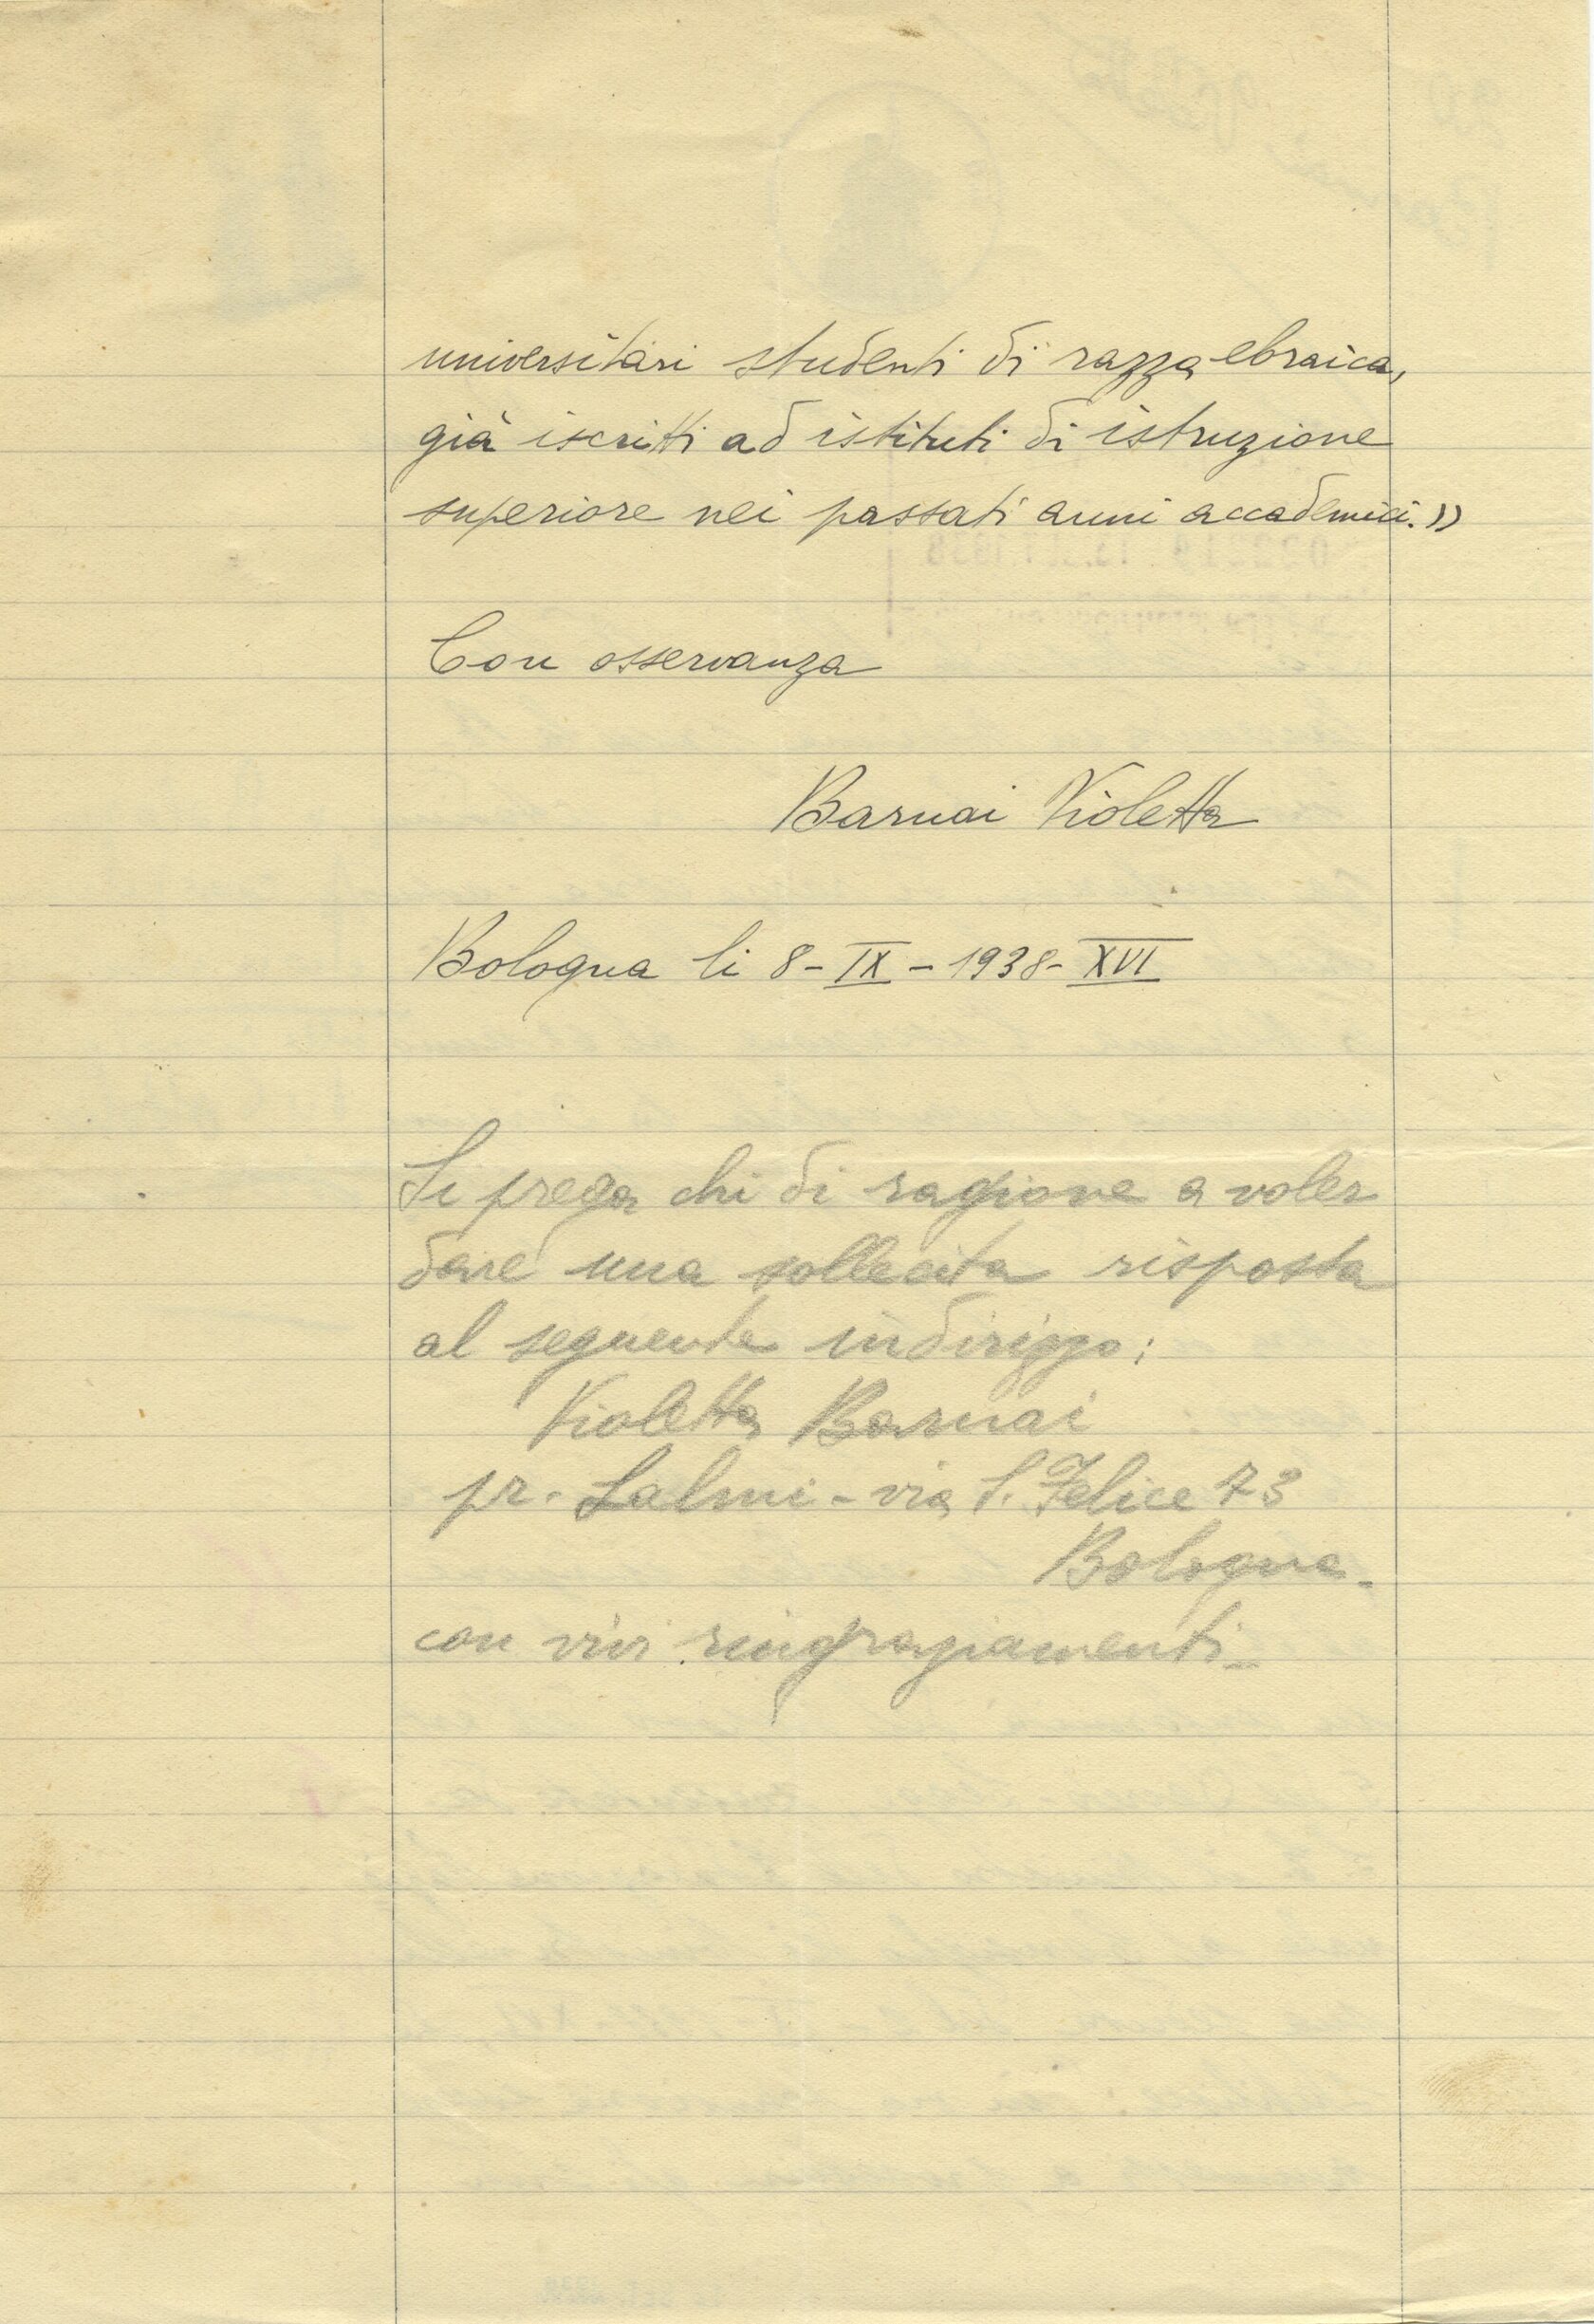 universitari studenti di razza ebraica,
già iscritti ad istituti di istruzione
superiore nei passati anni accademici.»
Con osservanza
Barnai Violetta
Bologna li 8-IX-1938-XVI
Si prega chi di ragione a voler
dare una sollecita risposta
al seguente indirizzo:
Violetta Barnai
pr. Lalmi - via S. Felice 73
Bologna.
con vivi ringraziamenti_